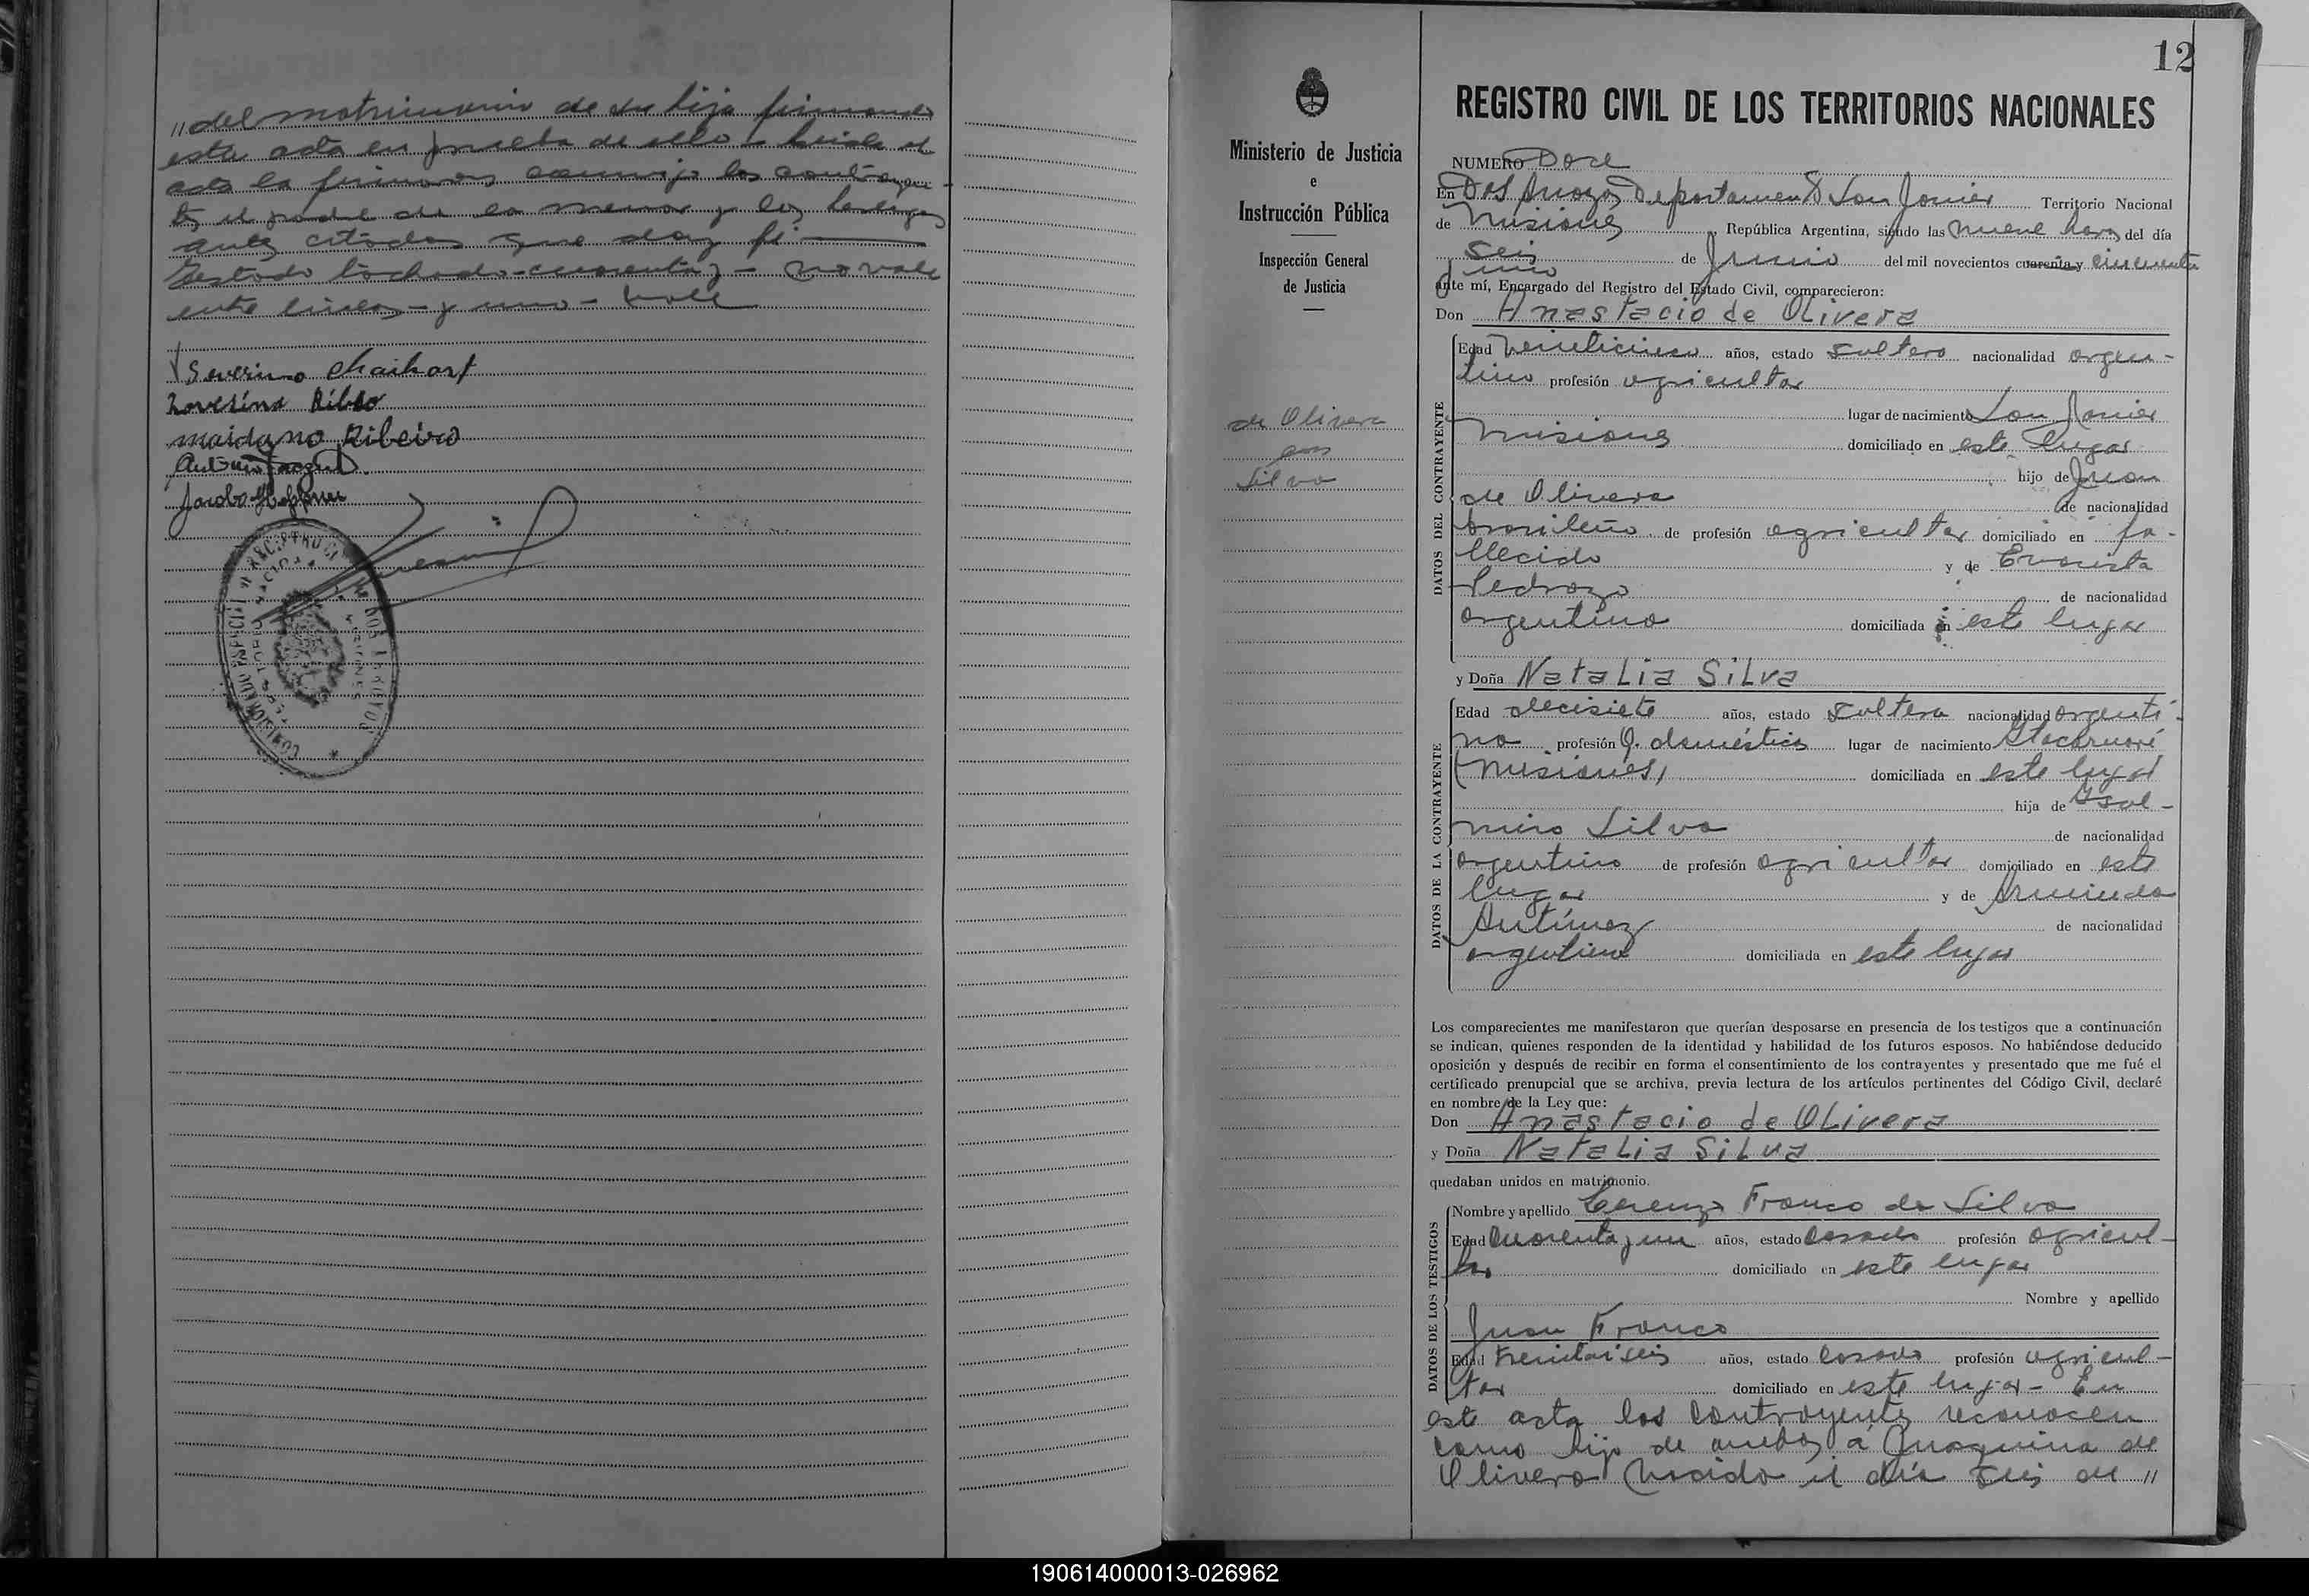 "del matrimonio de su hija firmando
esta acta en prueba de ello - Leida el
acta la firmaron conmigo los contrayen-
tes el padre de la menor y los testigos
antes citados que doy fé
Testado tachado - cuarenta y - no vale
entre lineas - y uno - vale
Severino
Ribeiro
Jacobo
12
REGISTRO CIVIL DE LOS TERRITORIOS NACIONALES
Ministerio de Justicia
e
Instrucción Pública
Inspección General
de Justicia
de Olivera
con
Silva
NUMERO Doce
En Dos Arroyos Departamento San Javier Territorio Nacional
de Misiones República Argentina, siendo las nueve horas del día
seis de Junio del mil novecientos cuarenta y cincuenta
y uno
ante mí, Encargado del Registro del Estado Civil, comparecieron:
Don Anastacio de Olivera
DATOS DEL CONTRAYENTE
Edad veinticinco años, estado soltero nacionalidad argen-
tino profesión agricultor
lugar de nacimiento San Javier
Misiones domiciliado en este lugar
hijo de Juan
de Olivera de nacionalidad
brasileño de profesión agricultor domiciliado en fa-
llecido y de Evarista
Pedrozo de nacionalidad
argentina domiciliada en este lugar
y Doña Natalia Silva
DATOS DE LA CONTRAYENTE
Edad diecisiete años, estado soltera nacionalidad argenti-
na profesión Q. domésticos lugar de nacimiento Itacaruaré
(Misiones) domiciliada en este lugar
hija de Isol-
miro Silva de nacionalidad
argentino de profesión agricultor domiciliado en este
lugar y de Arminda
Antúnez de nacionalidad
argentina domiciliada en este lugar
Los comparecientes me manifestaron que querían desposarse en presencia de los testigos que a continuación
se indican, quienes responden de la identidad y habilidad de los futuros esposos. No habiéndose deducido
oposición y después de recibir en forma el consentimiento de los contrayentes y presentado que me fué el
certificado prenupcial que se archiva, previa lectura de los artículos pertinentes del Código Civil, declaré
en nombre de la Ley que:
Don Anastacio de Olivera
y Doña Natalia Silva
quedaban unidos en matrimonio.
DATOS DE LOS TESTIGOS
Nombre y apellido Franco da Silva
Edad cuarenta y un años, estado casado profesión agricul-
tor domiciliado en este lugar
Nombre y apellido
Juan Franco
Edad treintaiseis años, estado casado profesión agricul-
tor domiciliado en este lugar - En
este acta los contrayentes reconocen
como hijo de ambos a Juaquina de
Olivera nacida el día seis de "
190614000013-026962